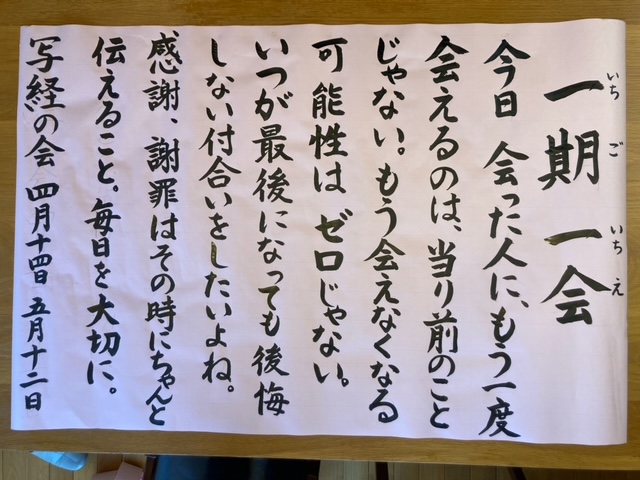 一期一会
いちごいちえ
今日会った人に、もう一度
会えるのは、当り前のこと
じゃない。もう会えなくなる
可能性はゼロじゃない。
いつが最後になっても後悔
しない付合いをしたいよね。
感謝、謝罪はその時にちゃんと
伝えること。毎日を大切に。
写経の会 四月十四日 五月十二日